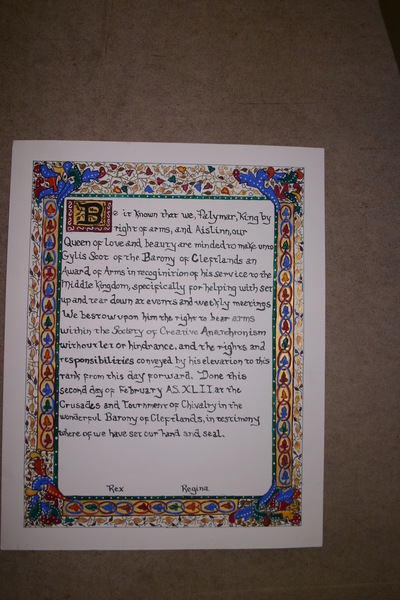 Be it Known that we, Palymar, King by
right of arms, and Aislinn, our
Queen of love and beauty are minded to make unto
Gylis Scot of the Barony of Cleftlands an
Award of Arms in recoginition of his service to the
Middle Kingdom, specifically for helping with set
up and tear down at events and weekly meetings
We bestow upon him the right to bear arms
within the Society of Creative Anachronism
without let or hindrance, and the rights and
responsibilities conveyed by his elevation to this
rank from this day forward. Done this
second day of February A.S. XLII at the
Crusades and Tournment of Chivalry in the
wonderful Barony of Cleftlands, in testimony
where of we have set our hand and seal.
Rex Regina